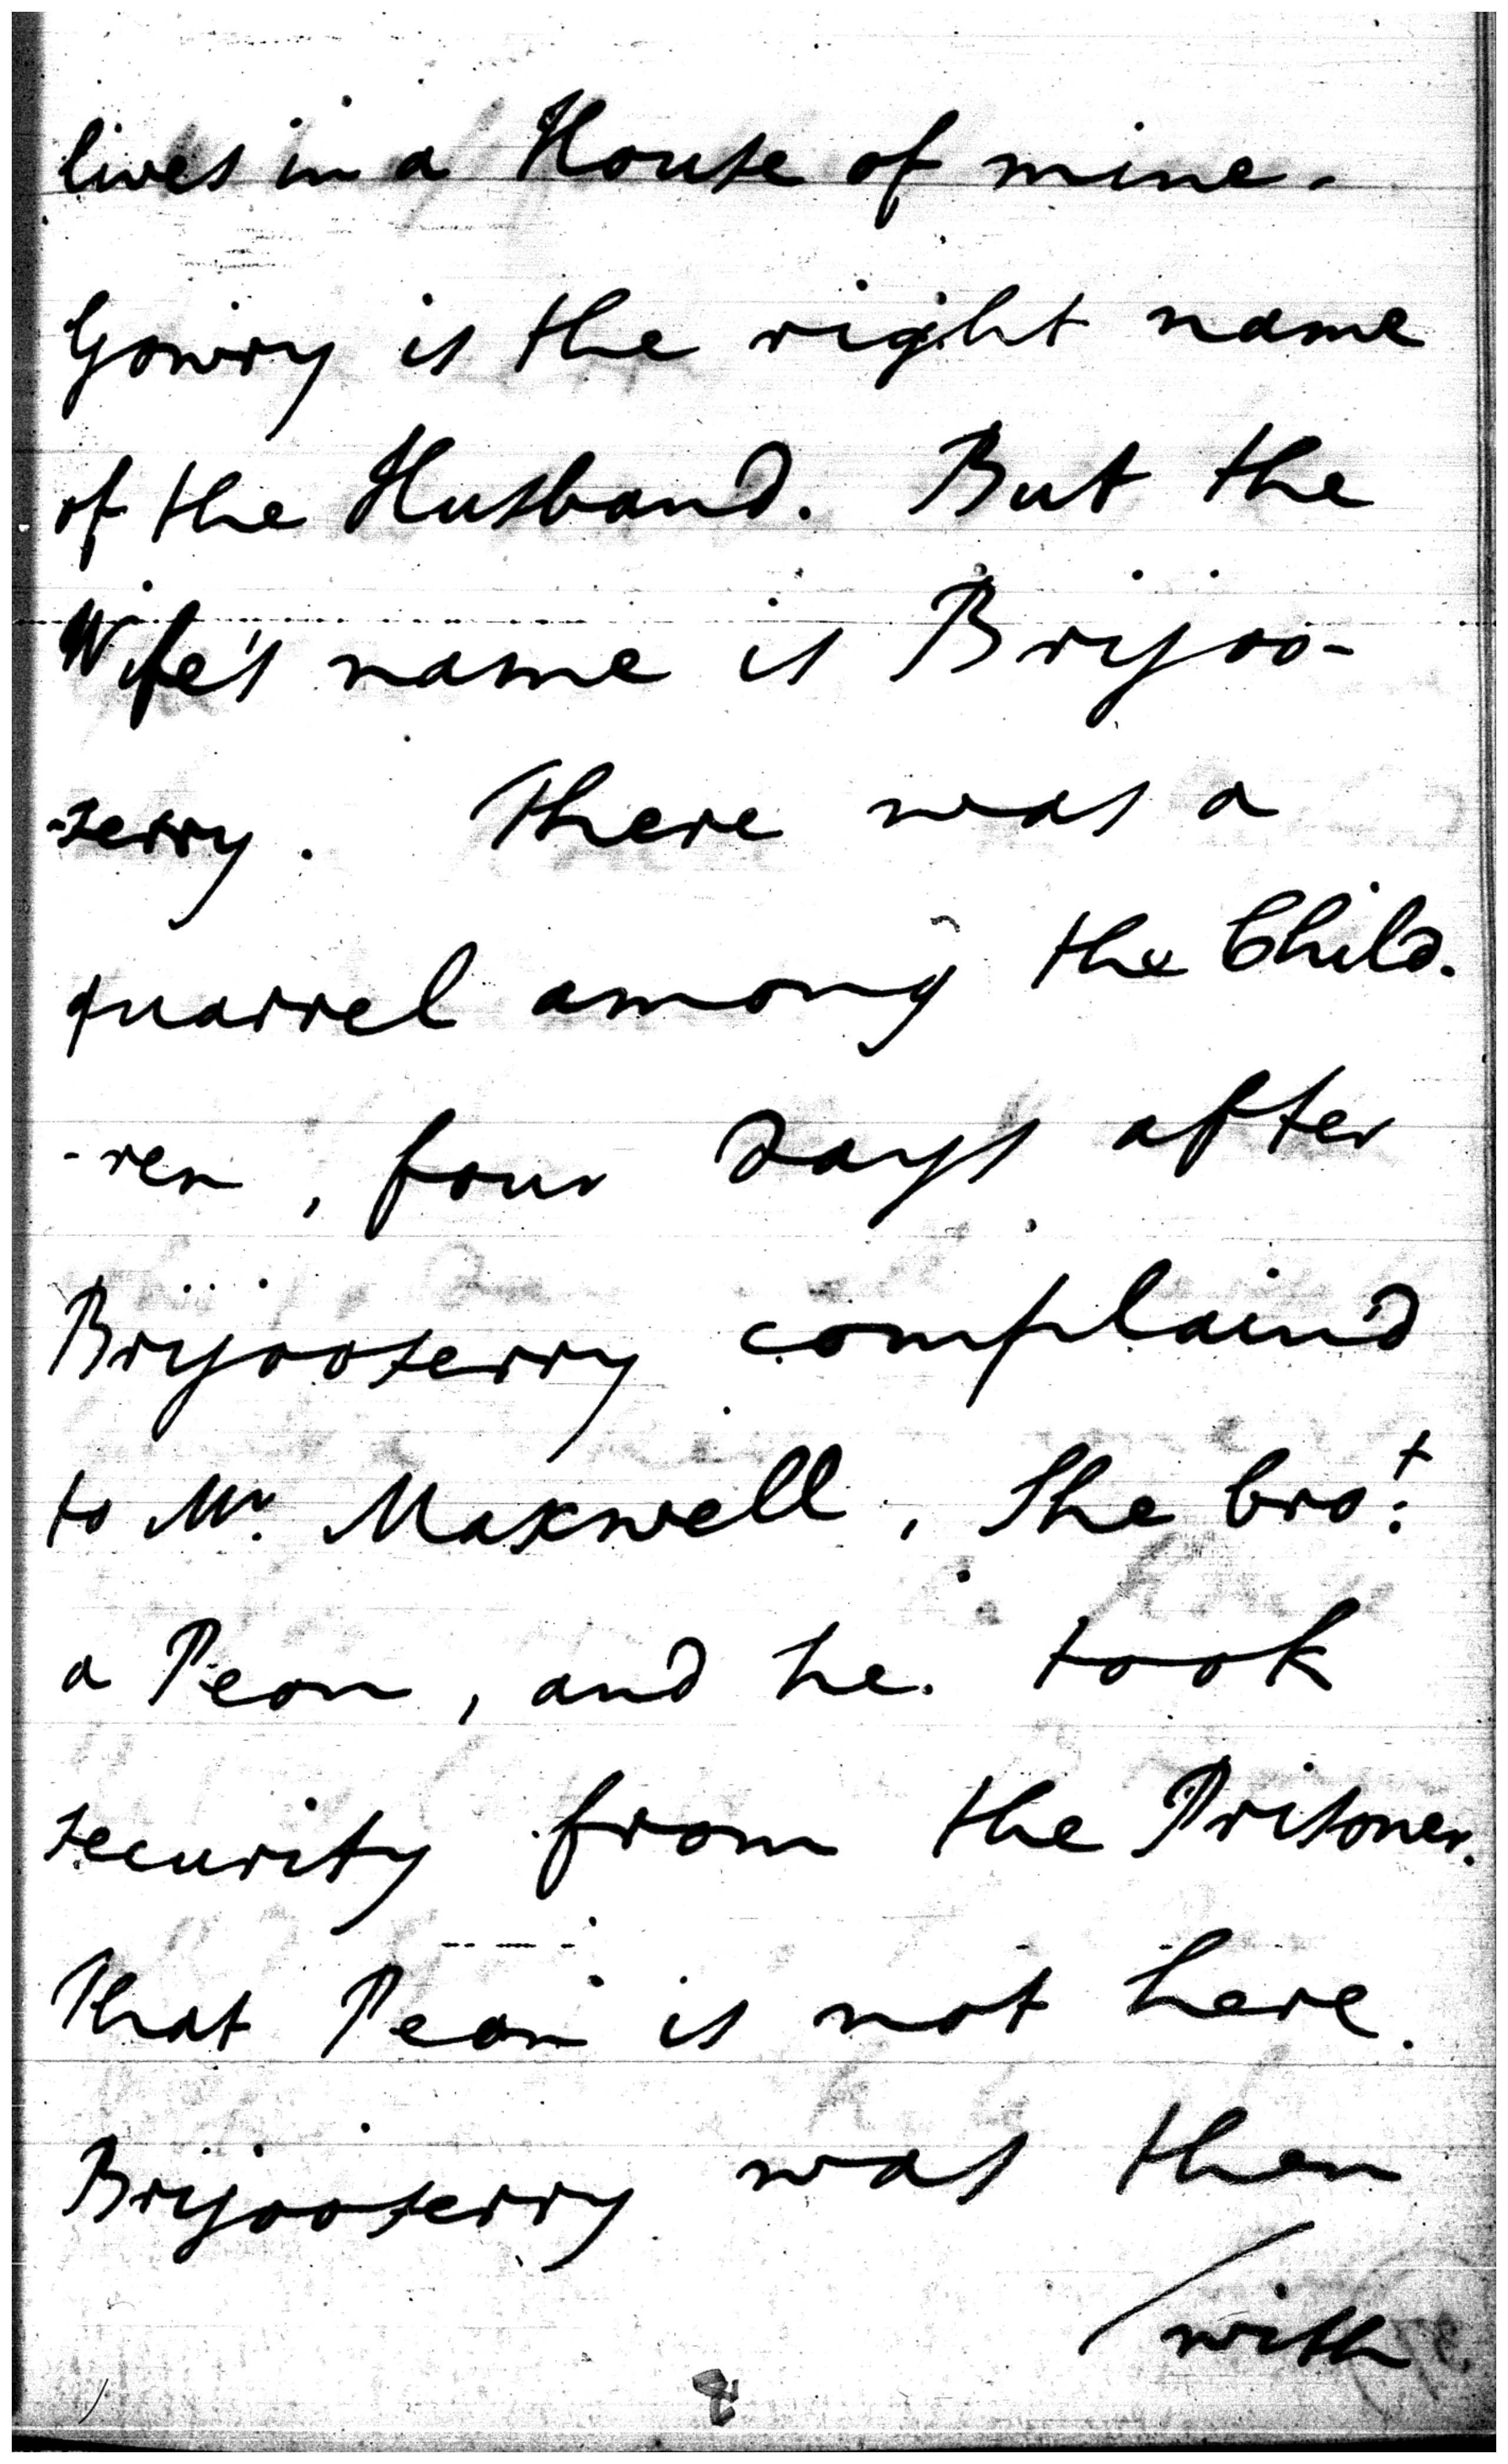 lives in a House of mine.
Gowry is the right name
of the Husband. But the
Wife's name is Brijoo-
-serry. There was a
quarrel among the Child.
-ren, four Days after
Brijooserry complain'd
to Mr. Maxwell, She bro.t
a Peon, and he took
security from the Prisoner.
That Peon is not here.
Brijooserry was then
/with